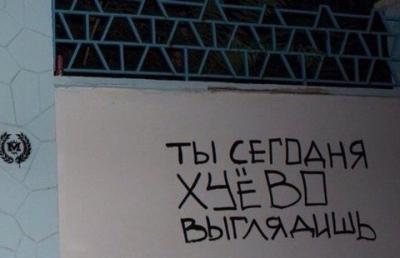 ТЫ СЕГОДНЯ
ХУЁВО
ВЫГЛЯДИШЬ